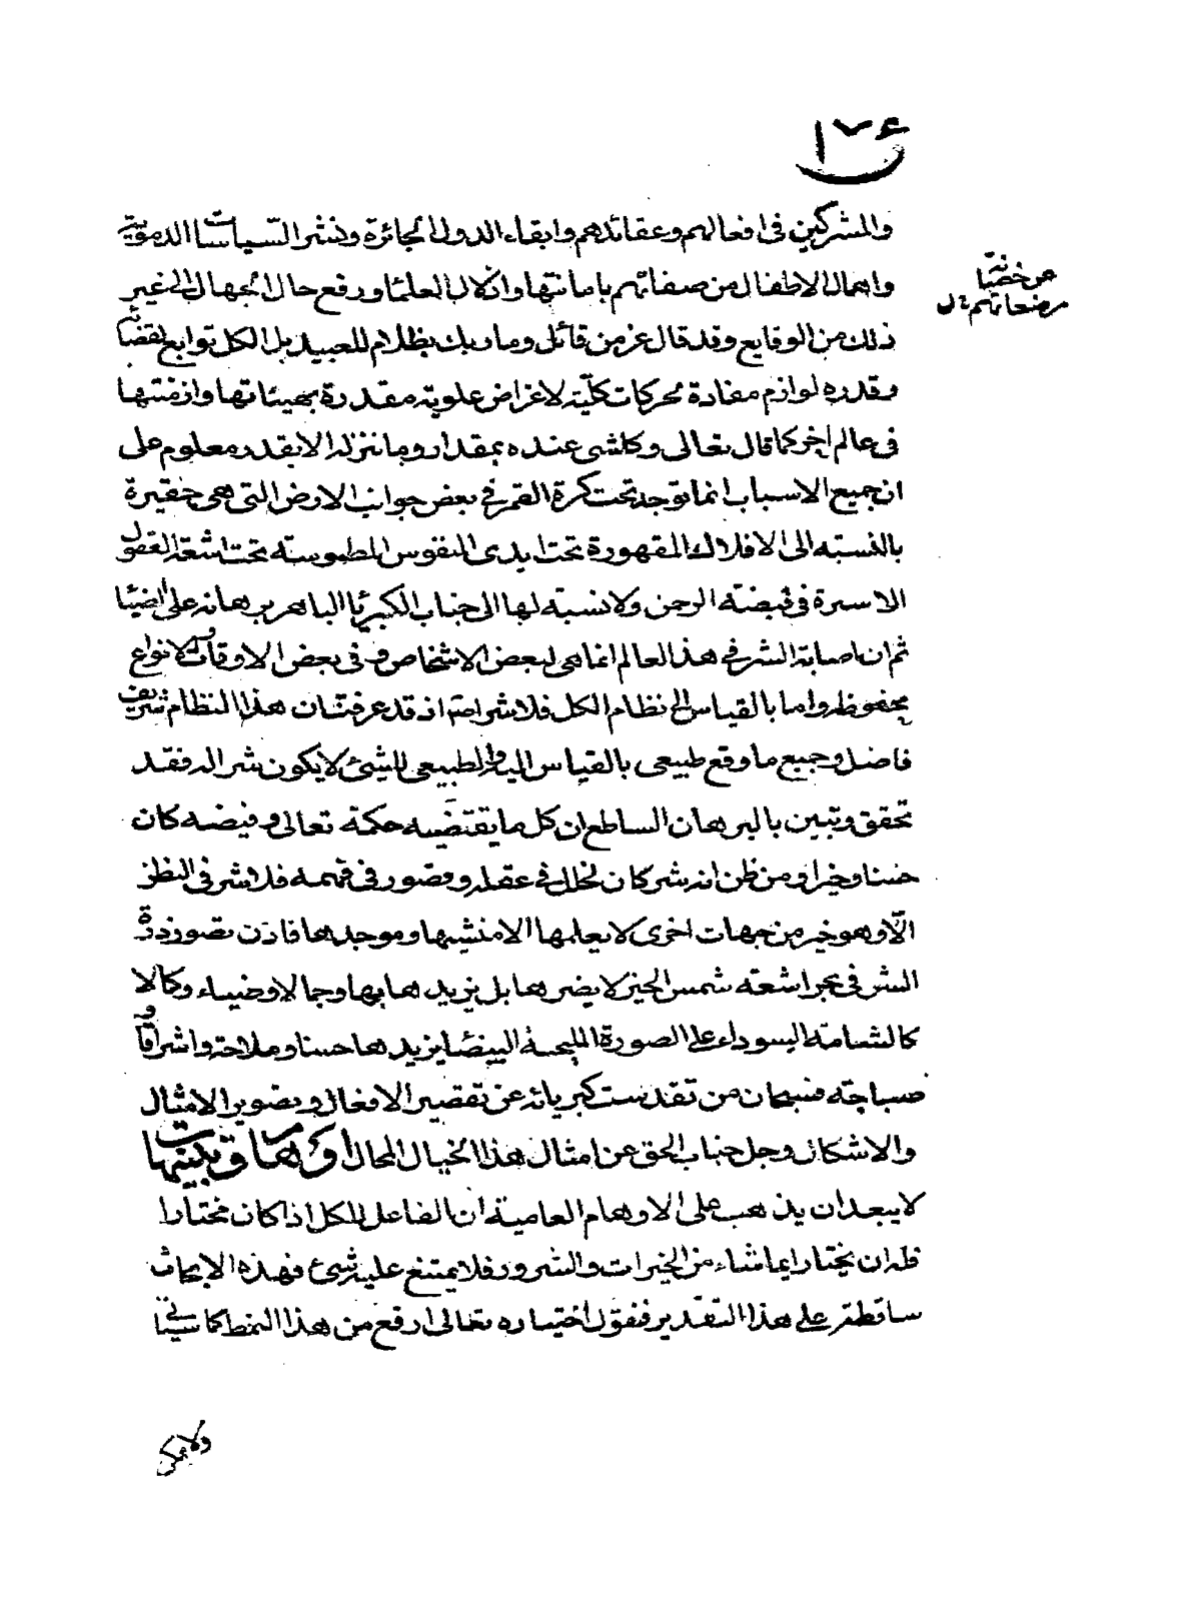 ١٧٤
والمشركين في افعالهم وعقائدهم وابقاء الدول الجائرة ونشر السياسات الدموية
واهمال الاطفال من صفاتهم باماتتها واذلال العلماء ورفع حال الجهال الى غير
عن حضنتها
مرضعاتهم ل
ذلك من الوقايع وقد قال عز من قائل وما ربك بظلام للعبيد بل الكل توابع لقضائه
وقدره لوازم مفادة محركات كلية لاغراض علوية مقدرة بهيئاتها وازمنتها
في عالم اخر كما قال تعالى وكل شئ عنده بمقدار وما ننزله الا بقدر معلوم على
ان جميع الاسباب انما توجد تحت كرة القمر في بعض جوانب الارض التي هي حقيرة
بالنسبة الى الافلاك المقهورة تحت ايدى النفوس المطموسة تحت اشعة العقول
الاسيرة في قبضة الرحمن ولا نسبة لها الى جناب الكبرياء الباهر برهانه على الضياء
ثم ان اصابة الشر في هذا العالم انما هي لبعض الاشخاص وفي بعض الاوقات والانواع
محفوظة واما بالقياس الى نظام الكل فلا شر اصلا اذ قد عرفت ان هذا النظام شريف
فاضل وجميع ما وقع طبيعى بالقياس اليه والطبيعى للشئ لا يكون شرا له فقد
تحقق وتبين بالبرهان الساطع ان كل ما يقتضيه حكمة تعالى وفيضه كان
حسنا وخيرا ومن ظن انه شر كان لخلل في عقله وقصور في فهمه فلا شر في النظر
الا وهو خير من جهات اخرى لا يعلمها الا منشيها وموجدها فاذن تصور ذرة
الشر في بحر اشعة شمس الخير لا يضرها بل يزيدها بهاء وجمالا وضياء وكمالا
كالشامة السوداء على الصورة المليحة البيضاء يزيدها حسنا وملاحة واشراقا و
صباحة فسبحان من تقدست كبريائه عن تقصير الافعال وتصوير الامثال
والاشكال وجل جناب الحق عن امثال هذا الخيال المحال اوهام وتنبيهات
لا يبعد ان يذهب على الاوهام العامية ان الفاعل للكل اذا كان مختارا
فله ان يختار ايما شاء من الخيرات والشرور فلا يمتنع عليه شئ فهذه الابحاث
ساقطة على هذا التقدير فنقول اختياره تعالى ارفع من هذا النمط كما سيأتي
ولا يمكن